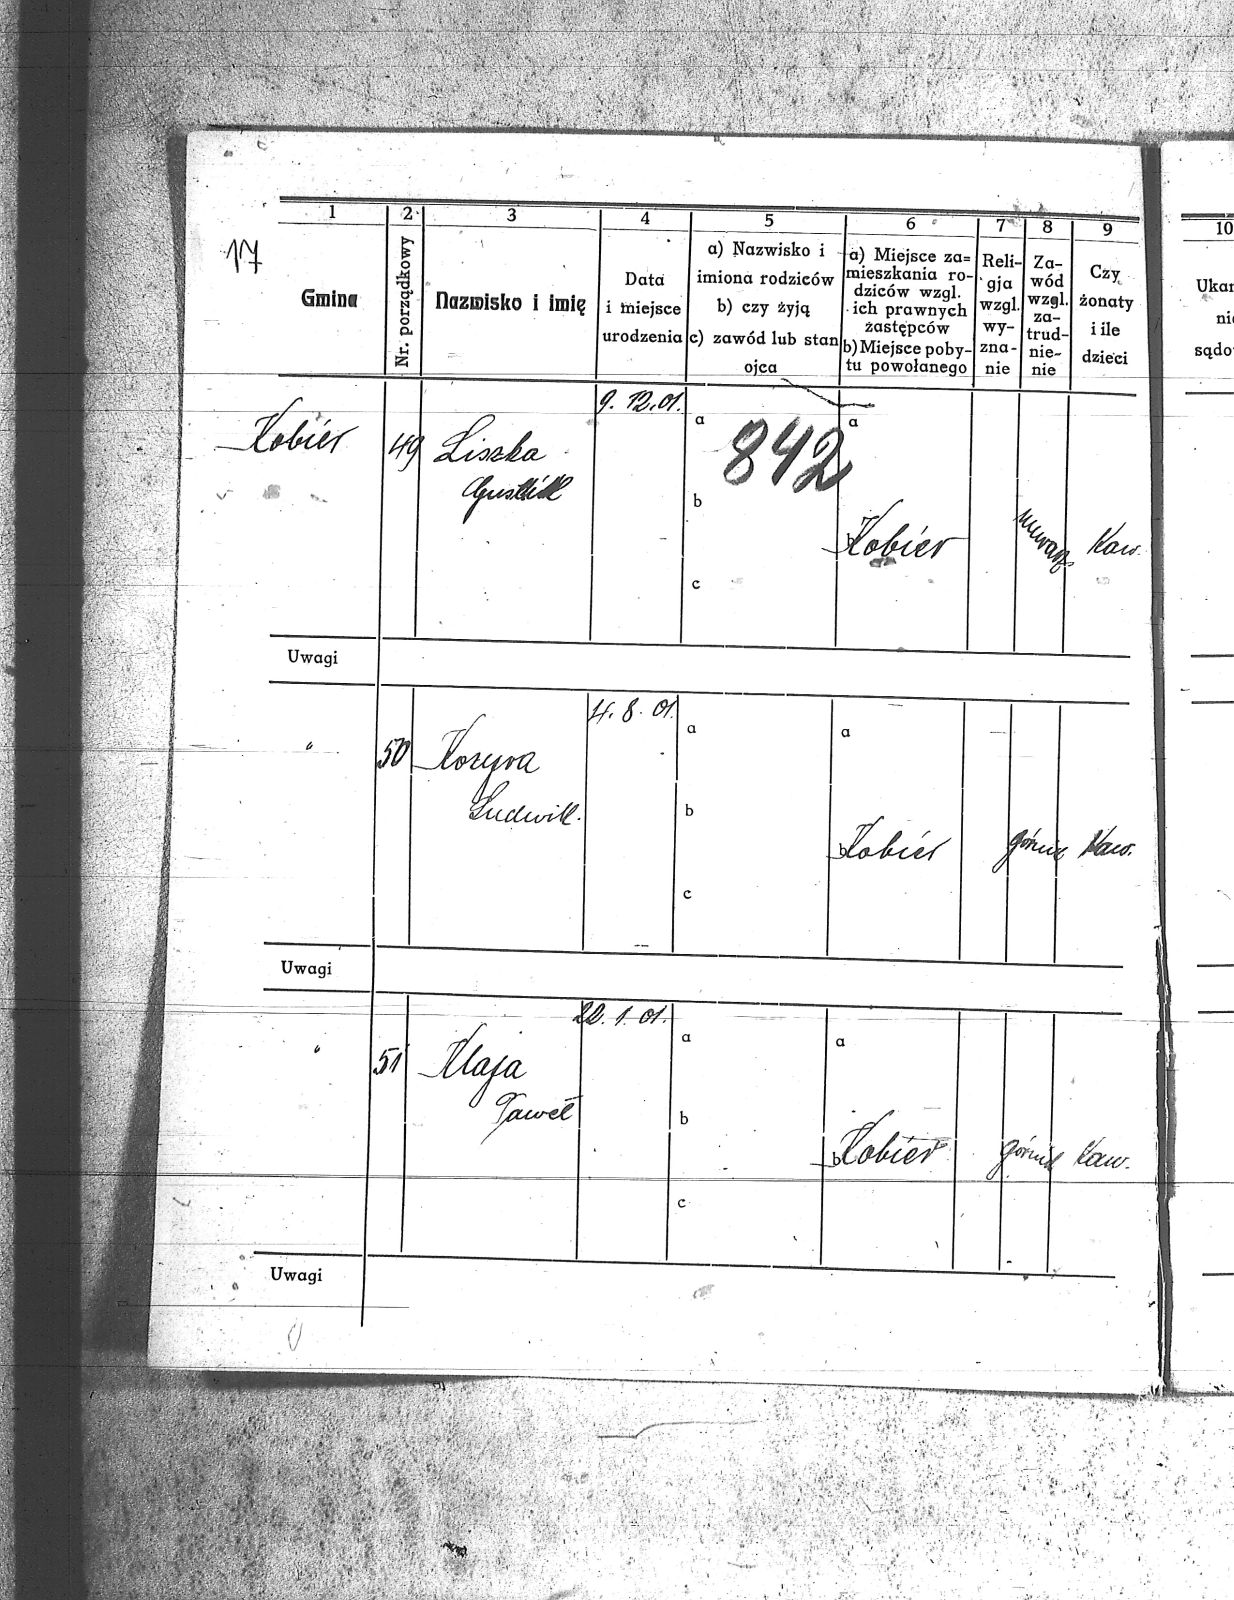 17
1 2 3 4 5 6 7 8 9 10
Gmina
Nr. porządkowy
Nazwisko i imię
Data
i miejsce
urodzenia
a) Nazwisko i
imiona rodziców
b) czy żyją
c) zawód lub stan
ojca
a) Miejsce za=
mieszkania ro-
dziców wzgl.
ich prawnych
zastępców
b) Miejsce poby-
tu powołanego
Reli-
gja
wzgl.
wy-
zna-
nie
Za-
wód
wzgl.
za-
trud-
nie-
nie
Czy
żonaty
i ile
dzieci
Ukar
nie
sądo
9. 12. 01.
Kobiér 49 Liszka
a 842 a
b
b Kobiér murarz Kaw.
c
Uwagi
4. 8. 01.
" 50 Kozyra
Ludwik.
a a
b
b Kobiér górnik Kaw.
c
Uwagi
22. 1. 01.
" 51 Klaja
Paweł
a a
b
b Kobiér górnik Kaw.
c
Uwagi